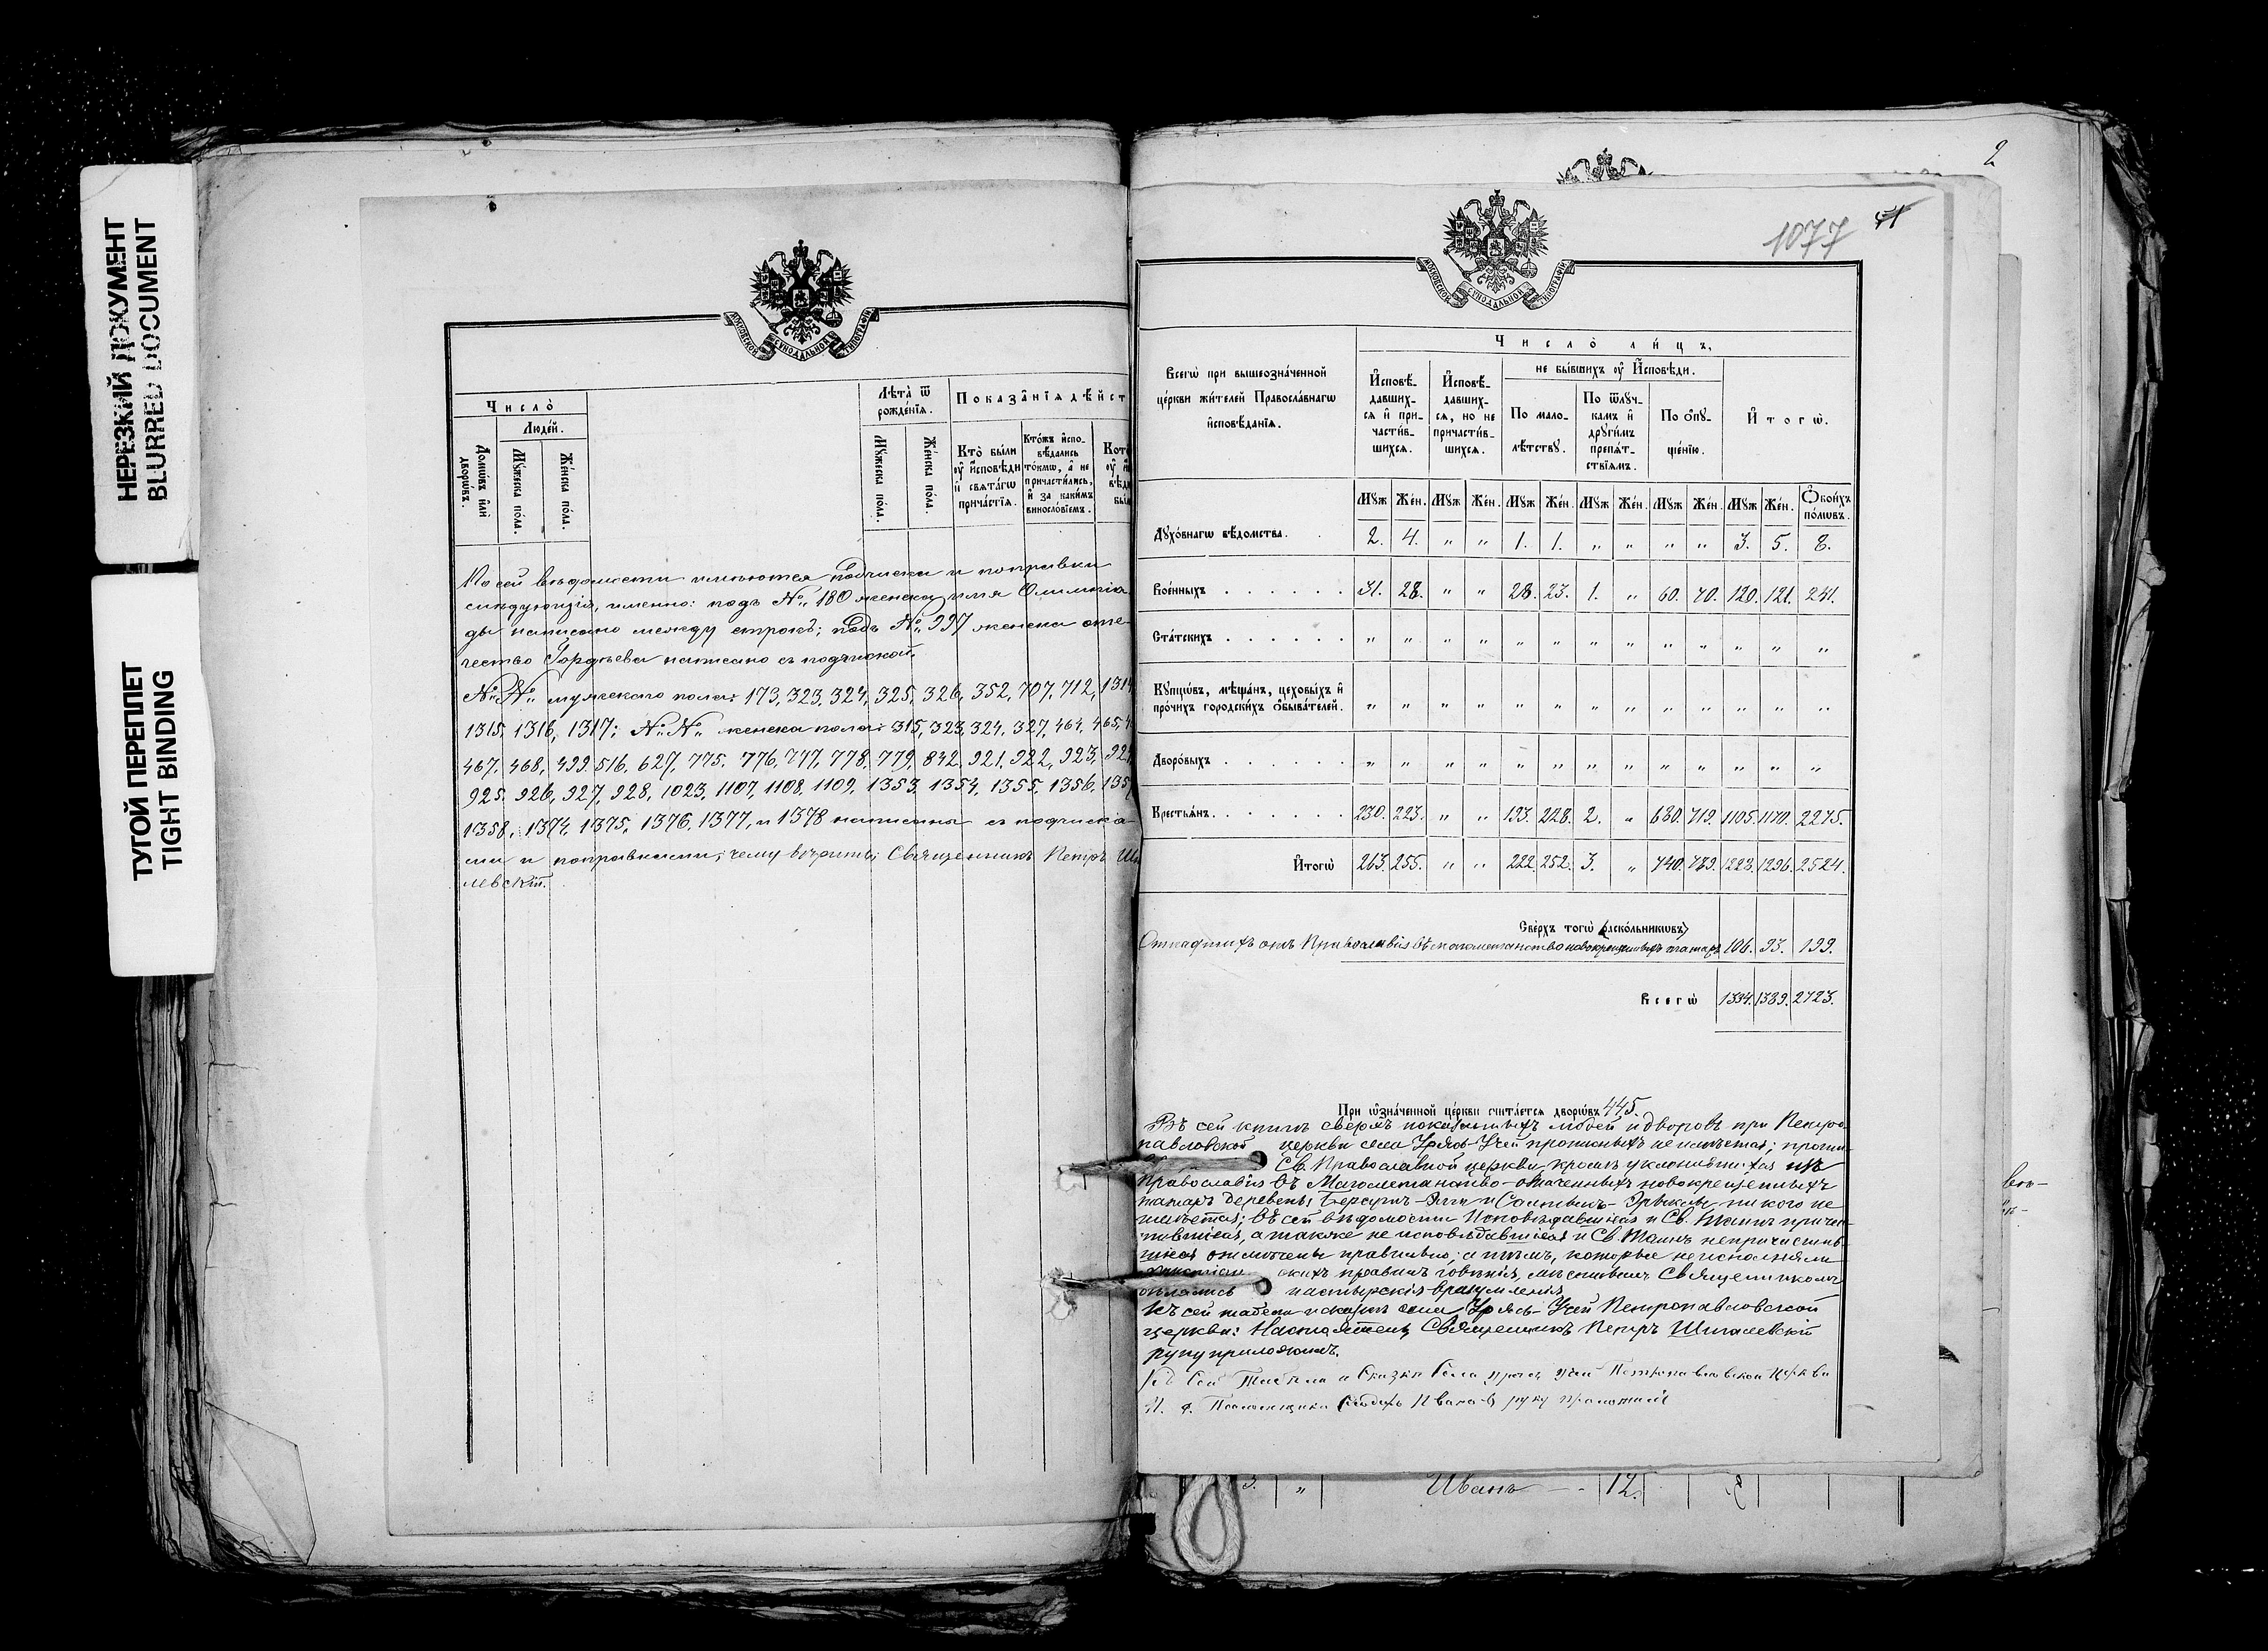 НЕРЕЗКИЙ ДОКУМЕНТ
BLURRED DOCUMENT
ТУГОЙ ПЕРЕПЛЕТ
TIGHT BINDING
МОСКОВСКОЙ СУНОДАЛЬНОЙ ТИПОГРАФІИ
Число̀
Людéй.
Домѡ́въ и҆лѝ дворѡ́въ.
Мꙋ́жеска по́ла.
Же́нска по́ла.
Лѣ́та ѿ рожде́нїѧ.
Мꙋ́жеска по́ла.
Же́нска по́ла.
Показа̑нїѧ дѣ́йст
Кто̀ бы́ли ᲂу҆ и҆сповѣди и҆ свѧта́гѡ прича́стїѧ.
Кто́жъ и҆спо-вѣ́дались то́кмѡ, а҆ не причасти́лись, и҆ за каки́мъ винословїемъ.
По сей вѣдомости имѣются подчиски и поправки
слѣдующія, именно: подъ №„ 180 женска имя Олимпіа
ды написано между строкъ; подъ №„ 997 женска оте-
чество Гордѣева написано съ подчиской.
№„ №„ мужескаго пола: 173, 323, 324, 325, 326, 352, 707, 712, 1314
1315, 1316, 1317; №„ №„ женска пола: 315, 323, 324, 327, 464, 465,
467, 468, 499, 516, 627, 775, 776, 777, 778, 779, 842, 921, 922, 923, 924
925, 926, 927, 928, 1023, 1107, 1108, 1109, 1353, 1354, 1355, 1356, 1357
1358, 1374, 1375, 1376, 1377, и 1378 написаны съ подчиска-
ми и поправками, чему вѣрить; Священникъ Петръ Ши
левскій.
2
1077
МОСКОВСКОЙ СУНОДАЛЬНОЙ ТИПОГРАФІИ
Число̀ ли́цъ,
Всегѡ̀ при вышеозна́ченной це́ркви жи́телей Правосла́внагѡ и҆сповѣ́данїѧ.
И҆сповѣ́-давших-сѧ и҆ при-части́в-шихсѧ.
И҆сповѣ́-давших-сѧ, но не причасти́в-шихсѧ.
не бы́вшихъ ᲂу҆ И҆сповѣди.
По мало-лѣ́тствꙋ.
По ѿлꙋч-камъ и҆ дрꙋги́мъ препѧ́т-ствїѧмъ.
По ѻ҆пꙋ-ще́нїю.
И҆тогѡ̀.
Мꙋж Же́н. Мꙋж Же́н. Мꙋж Же́н. Мꙋж Же́н. Мꙋж Же́н. Мꙋж Же́н. Ѻ҆бои́хъ по́лѡвъ.
Дꙋхо́внагѡ вѣ́домства. 2. 4. „ „ 1. 1. „ „ „ „ 3. 5. 8.
Вое́нныхъ 31. 28. „ „ 28. 23. 1. „ 60. 70. 120. 121. 241.
Ста́тскихъ „ „ „ „ „ „ „ „ „ „ „ „ „
Кꙋпцѡ́въ, мѣща́нъ, цеховы́хъ и҆ про́чихъ городски́хъ ѻ҆быва́телей. „ „ „ „ „ „ „ „ „ „ „ „ „
Дворо́выхъ „ „ „ „ „ „ „ „ „ „ „ „ „
Крестьѧ́нъ 230. 223. „ „ 193. 228. 2. „ 680. 719. 1105. 1170. 2275.
И҆тогѡ̀ 263. 255. „ „ 222. 252. 3. „ 740. 789. 1228. 1296. 2524.
Све́рхъ тогѡ̀ (раско́льникѡвъ)
Отпадшихъ отъ Православія въ магометанство новокрещенныхъ татаръ 106. 93. 199.
Всегѡ̀ 1334. 1389. 2723.
При ѡ҆зна́ченной це́ркви счита́етсѧ дворѡ́въ 445.
Въ сей книгѣ сверхъ показанныхъ людей и дворовъ при Петро-
павловской церкви села Урясь-Учей прописныхъ не имѣется;
Св. Православной церкви кромѣ уклонившихся изъ
Православія въ Магометанство означенныхъ новокрещенныхъ
татаръ деревень: никого не
имѣется; въ сей вѣдомости Исповѣдавшіеся и Св. Таинъ прича-
тившіеся, а также не исповѣдавшіеся и Св. Таинъ непричастив-
шіеся отмѣчены правильно; а тѣмъ, которые не исполняли
скихъ правилъ говѣнія, мѣстнымъ Священникомъ
пастырскія вразумленія.
Къ сей табели и сказкѣ села Урясь-Учей Петропавловской
церкви: Настоятель Священникъ Петръ Шигалевскій
руку приложилъ.
Къ Сей Табели и Сказки Села Урясь Учей Петропавловской Церкви
И. д. Псаломщика Иванов руку приложилъ
Иванъ 12.